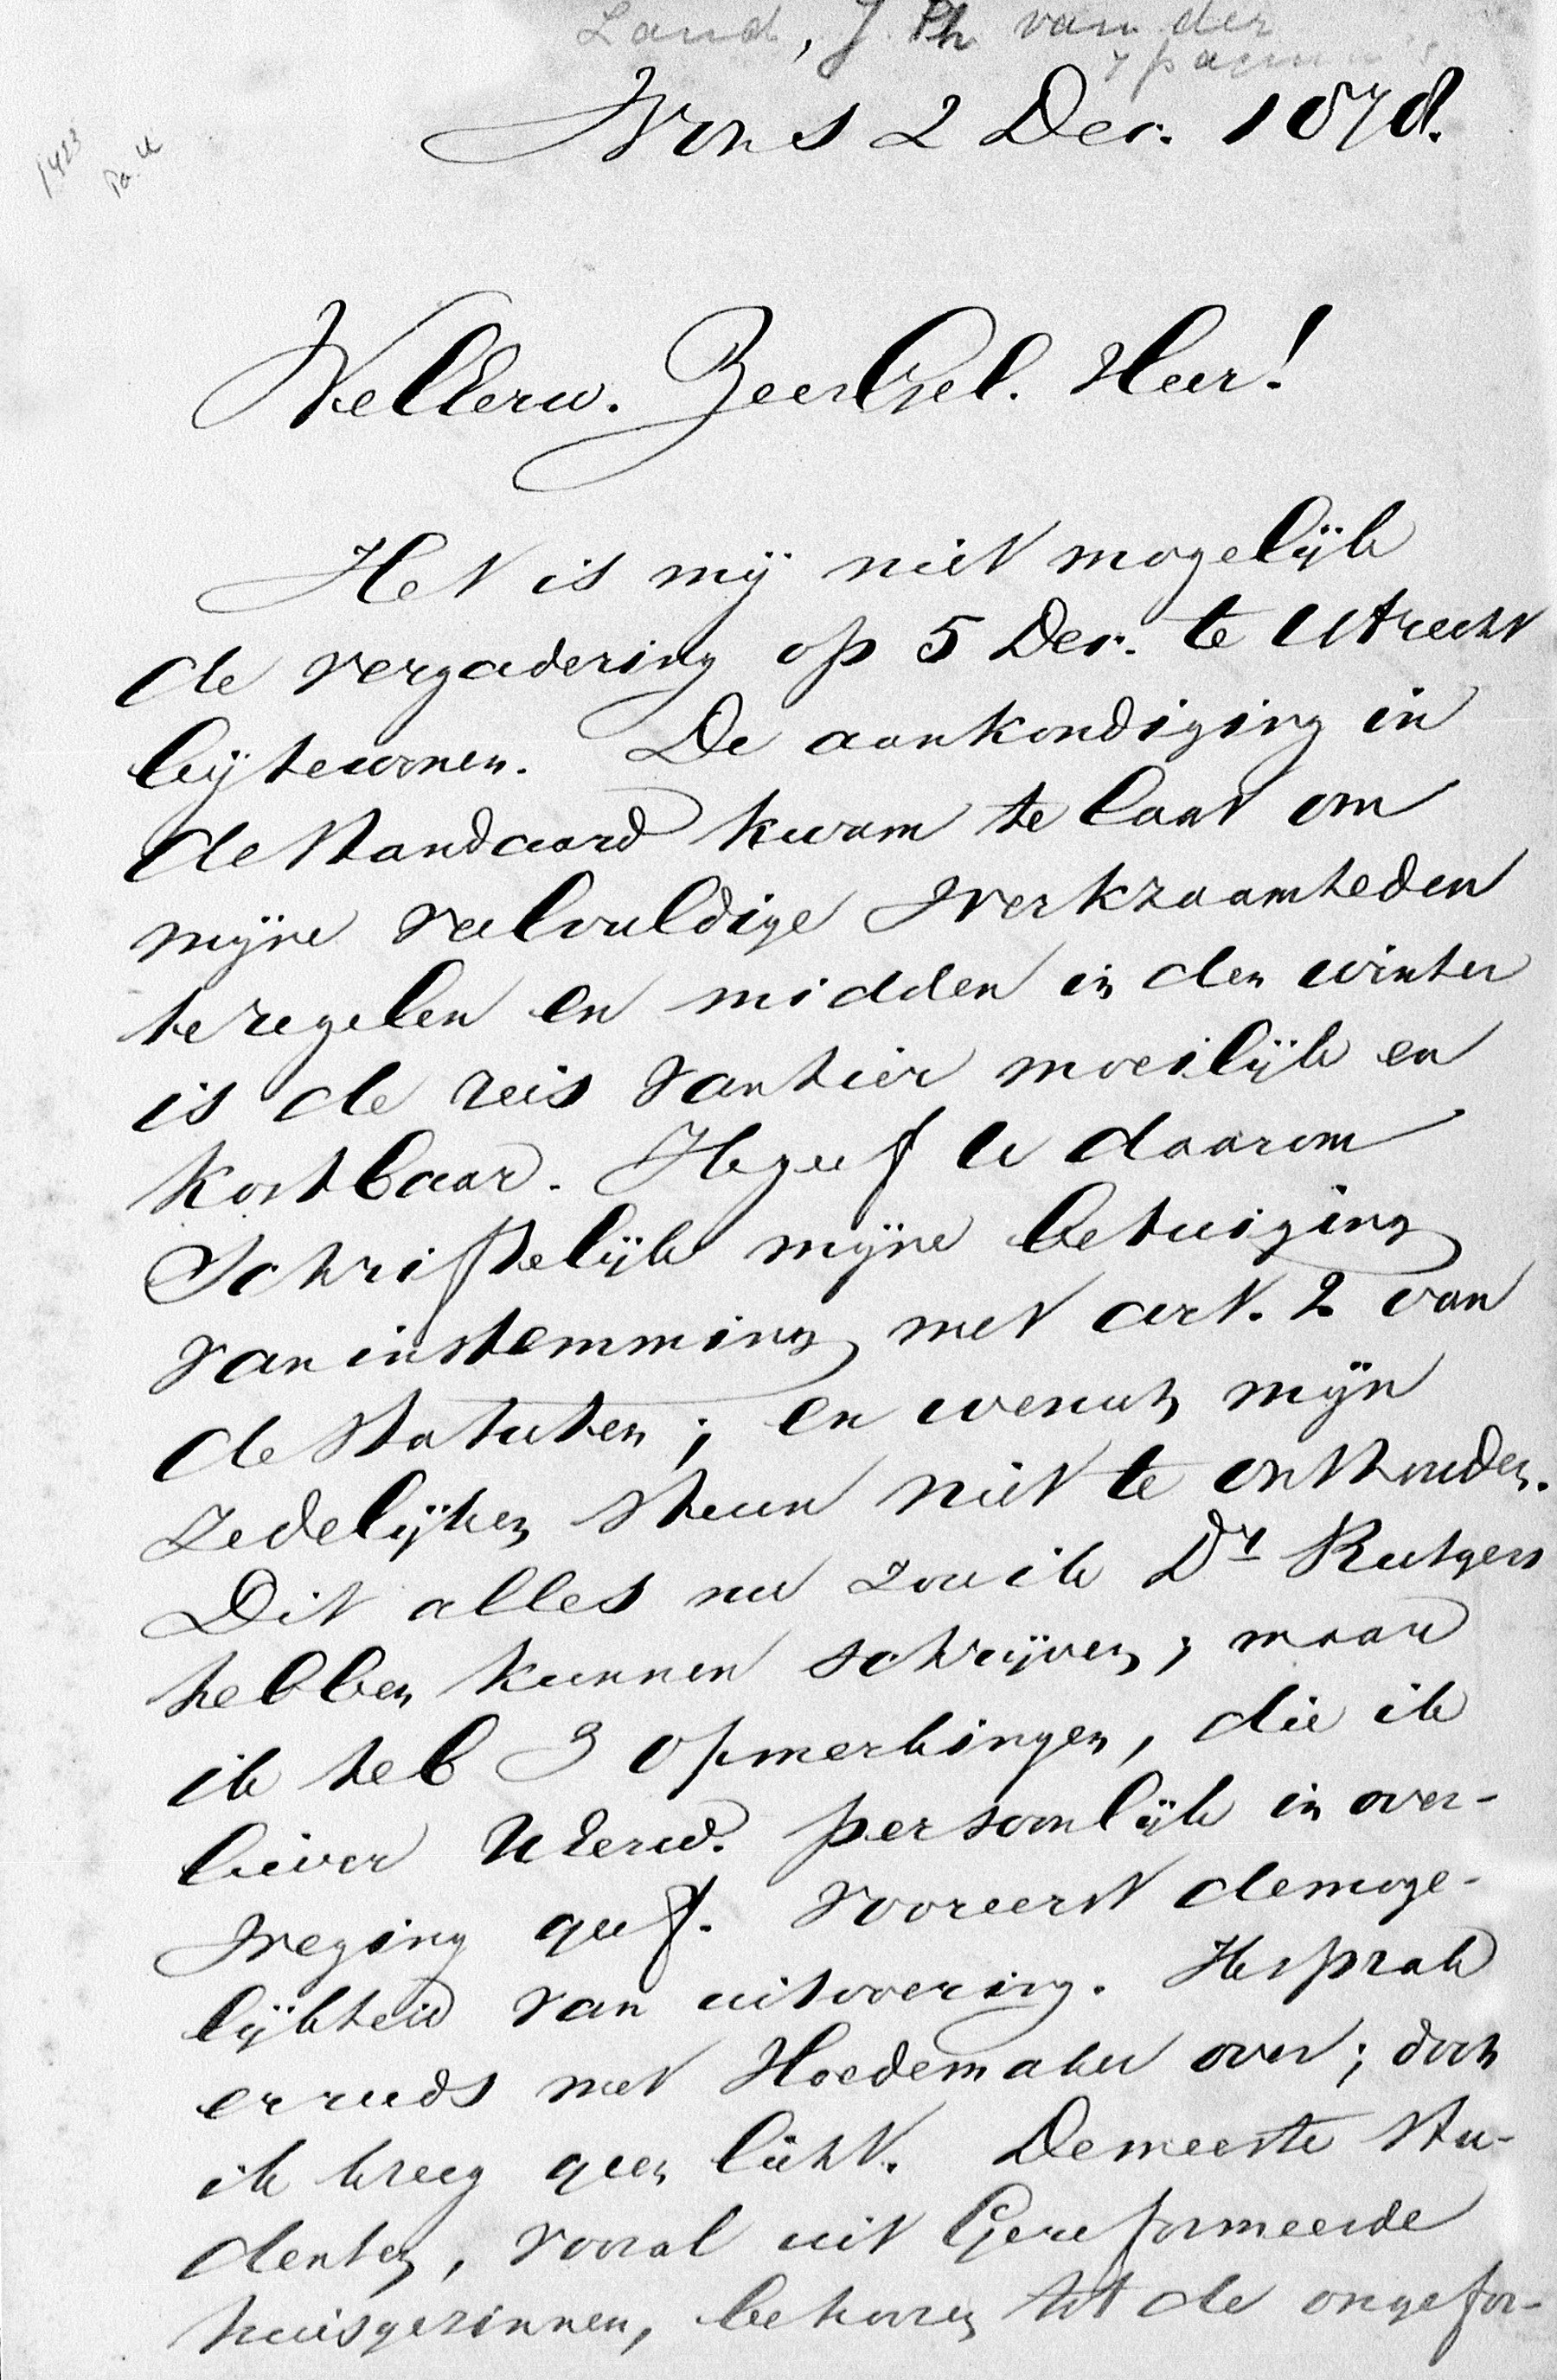 Land, J. Ph van der
Wons 2 Dec. 1878.
1423
WelEerw. ZeerGel. Heer!
Het is mij niet mogelijk
de vergadering op 5 Dec. te Utrecht
bijtewonen. De aankondiging in
de Standaard kwam te laat om
mijne veelvuldige werkzaamheden
te regelen en midden in den winter
is de reis van hier moeilijk en
kostbaar. Ik geef U daarom
schriftelijk mijne betuiging
van instemming met art. 2 van
de Statuten; en wensch mijn
zedelijken steun niet te onthouden.
Dit alles nu zou ik Dr Rutgers
hebben kunnen schrijven; maar
ik heb 3 opmerkingen, die ik
liever UEerw. persoonlijk in over-
weging geef. Vooreerst de moge-
lijkheid van uitvoering. Ik sprak
er reeds met Hoedemaker over; doch
ik kreeg geen licht. De meeste stu-
denten, vooral uit Gereformeerde
huisgezinnen, behooren tot de ongefor-